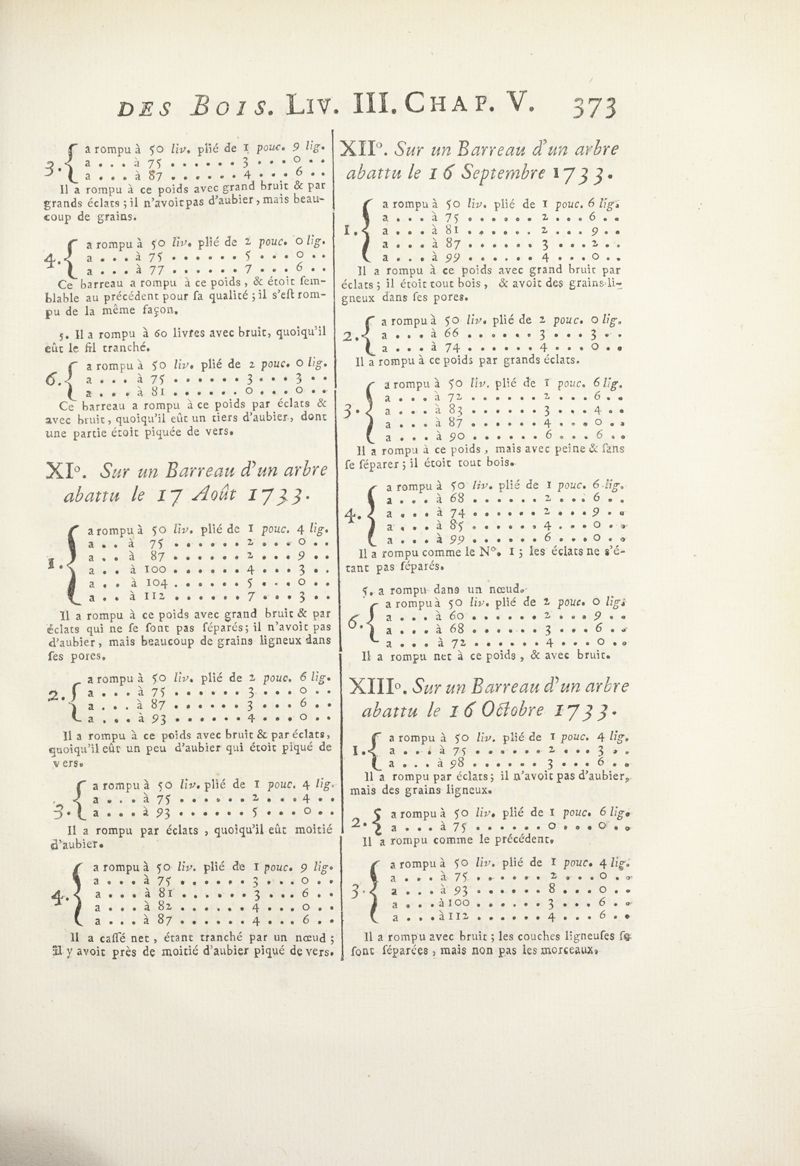 DES BOIS. LIV. III. CHAP. V. 373
a rompu à 50 liv. plié de 1 pouc. 9 lig.
3. a . . . à 75 . . . . . . 3 . . . 0 . .
a . . . à 87 . . . . . . 4 . . . 6 . .
Il a rompu à ce poids avec grand bruit & par
grands éclats ; il n'avoit pas d'aubier, mais beau-
coup de grains.
a rompu à 50 liv. plié de 2 pouc. 0 lig.
4. a . . . à 75 . . . . . . 5 . . . 0 . .
a . . . à 77 . . . . . . 7 . . . 6 . .
Ce barreau a rompu à ce poids, & étoit sem-
blable au précédent pour sa qualité ; il s'est rom-
pu de la même façon.
5. Il a rompu à 60 livres avec bruit, quoiqu'il
eût le fil tranché.
a rompu à 50 liv. plié de 2 pouc. 0 lig.
6. a . . . à 75 . . . . . . 3 . . . 3 . .
a . . . à 81 . . . . . . 0 . . . 0 . .
Ce barreau a rompu à ce poids par éclats &
avec bruit, quoiqu'il eût un tiers d'aubier, dont
une partie étoit piquée de vers.
XI°. Sur un Barreau d'un arbre
abattu le 17 Août 1733.
a rompu à 50 liv. plié de 1 pouc. 4 lig.
a . . à 75 . . . . . . 2 . . . 0 . .
a . . à 87 . . . . . . 2 . . . 9 . .
1. a . . à 100 . . . . . . 4 . . . 3 . .
a . . à 104 . . . . . . 5 . . . 0 . .
a . . à 112 . . . . . . 7 . . . 3 . .
Il a rompu à ce poids avec grand bruit & par
éclats qui ne se sont pas séparés ; il n'avoit pas
d'aubier, mais beaucoup de grains ligneux dans
ses pores.
a rompu à 50 liv. plié de 2 pouc. 6 lig.
2. a . . . à 75 . . . . . . 3 . . . 0 . .
a . . . à 87 . . . . . . 3 . . . 6 . .
a . . . à 93 . . . . . . 4 . . . 0 . .
Il a rompu à ce poids avec bruit & par éclats,
quoiqu'il eût un peu d'aubier qui étoit piqué de
vers.
a rompu à 50 liv. plié de 1 pouc. 4 lig.
3. a . . . à 75 . . . . . . 2 . . . 4 . .
a . . . à 93 . . . . . . 5 . . . 0 . .
Il a rompu par éclats, quoiqu'il eût moitié
d'aubier.
a rompu à 50 liv. plié de 1 pouc. 9 lig.
a . . . à 75 . . . . . . 3 . . . 0 . .
4. a . . . à 81 . . . . . . 3 . . . 6 . .
a . . . à 82 . . . . . . 4 . . . 0 . .
a . . . à 87 . . . . . . 4 . . . 6 . .
Il a cassé net, étant tranché par un nœud ;
il y avoit près de moitié d'aubier piqué de vers.
XII°. Sur un Barreau d'un arbre
abattu le 16 Septembre 1733.
a rompu à 50 liv. plié de 1 pouc. 6 lig.
a . . . à 75 . . . . . . 2 . . . 6 . .
1. a . . . à 81 . . . . . . 2 . . . 9 . .
a . . . à 87 . . . . . . 3 . . . 2 . .
a . . . à 99 . . . . . . 4 . . . 0 . .
Il a rompu à ce poids avec grand bruit par
éclats ; il étoit tout bois, & avoit des grains li-
gneux dans ses pores.
a rompu à 50 liv. plié de 2 pouc. 0 lig.
2. a . . . à 66 . . . . . . 3 . . . 3 . .
a . . . à 74 . . . . . . 4 . . . 0 . .
Il a rompu à ce poids par grands éclats.
a rompu à 50 liv. plié de 1 pouc. 6 lig.
a . . . à 72 . . . . . . 2 . . . 6 . .
3. a . . . à 83 . . . . . . 3 . . . 4 . .
a . . . à 87 . . . . . . 4 . . . 0 . .
a . . . à 90 . . . . . . 6 . . . 6 . .
Il a rompu à ce poids, mais avec peine & sans
se séparer ; il étoit tout bois.
a rompu à 50 liv. plié de 1 pouc. 6 lig.
a . . . à 68 . . . . . . 2 . . . 6 . .
4. a . . . à 74 . . . . . . 2 . . . 9 . .
a . . . à 85 . . . . . . 4 . . . 0 . .
a . . . à 99 . . . . . . 6 . . . 0 . .
Il a rompu comme le N°. 1 ; les éclats ne s'é-
tant pas séparés.
5. a rompu dans un nœud.
a rompu à 50 liv. plié de 2 pouc. 0 lig.
6. a . . . à 60 . . . . . . 2 . . . 9 . .
a . . . à 68 . . . . . . 3 . . . 6 . .
a . . . à 72 . . . . . . 4 . . . 0 . .
Il a rompu net à ce poids, & avec bruit.
XIII°. Sur un Barreau d'un arbre
abattu le 16 Octobre 1733.
a rompu à 50 liv. plié de 1 pouc. 4 lig.
1. a . . . à 75 . . . . . . 2 . . . 3 . .
a . . . à 98 . . . . . . 3 . . . 6 . .
Il a rompu par éclats ; il n'avoit pas d'aubier,
mais des grains ligneux.
a rompu à 50 liv. plié de 1 pouc. 6 lig.
2. a . . . à 75 . . . . . . 0 . . . 0 . .
Il a rompu comme le précédent.
a rompu à 50 liv. plié de 1 pouc. 4 lig.
a . . . à 75 . . . . . . 2 . . . 0 . .
3. a . . . à 93 . . . . . . 8 . . . 0 . .
a . . . à 100 . . . . . . 3 . . . 6 . .
a . . . à 112 . . . . . . 4 . . . 6 . .
Il a rompu avec bruit ; les couches ligneuses se
sont séparées, mais non pas les morceaux.